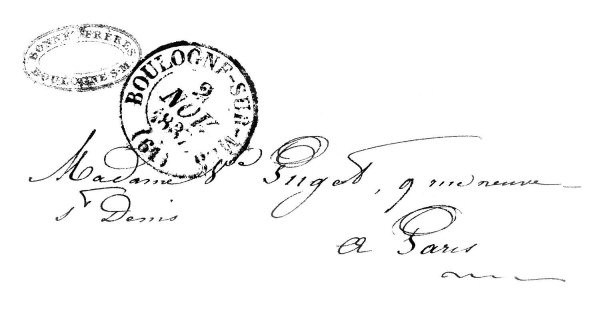 BONNE FRÈRES
BOULOGNE S-M
BOULOGNE-SUR-MER
2
NOV.
(61)
Madame Vve Puget, 9 rue neuve
st Denis
a Paris